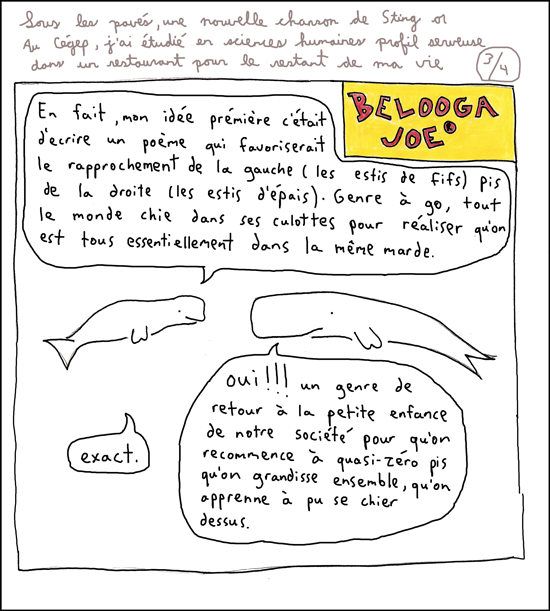 Sous les pavés, une nouvelle chanson de Sting or
Au Cégep, j'ai étudié en sciences humaines profil serveuse
dans un restaurant pour le restant de ma vie
3/4
BELOOGA
JOE®
En fait, mon idée prémière c'était
d'écrire un poème qui favoriserait
le rapprochement de la gauche (les estis de fifs) pis
de la droite (les estis d'épais). Genre à go, tout
le monde chie dans ses culottes pour réaliser qu'on
est tous essentiellement dans la même marde.
oui!!! un genre de
retour à la petite enfance
de notre société pour qu'on
recommence à quasi-zéro pis
qu'on grandisse ensemble, qu'on
apprenne à pu se chier
dessus.
exact.